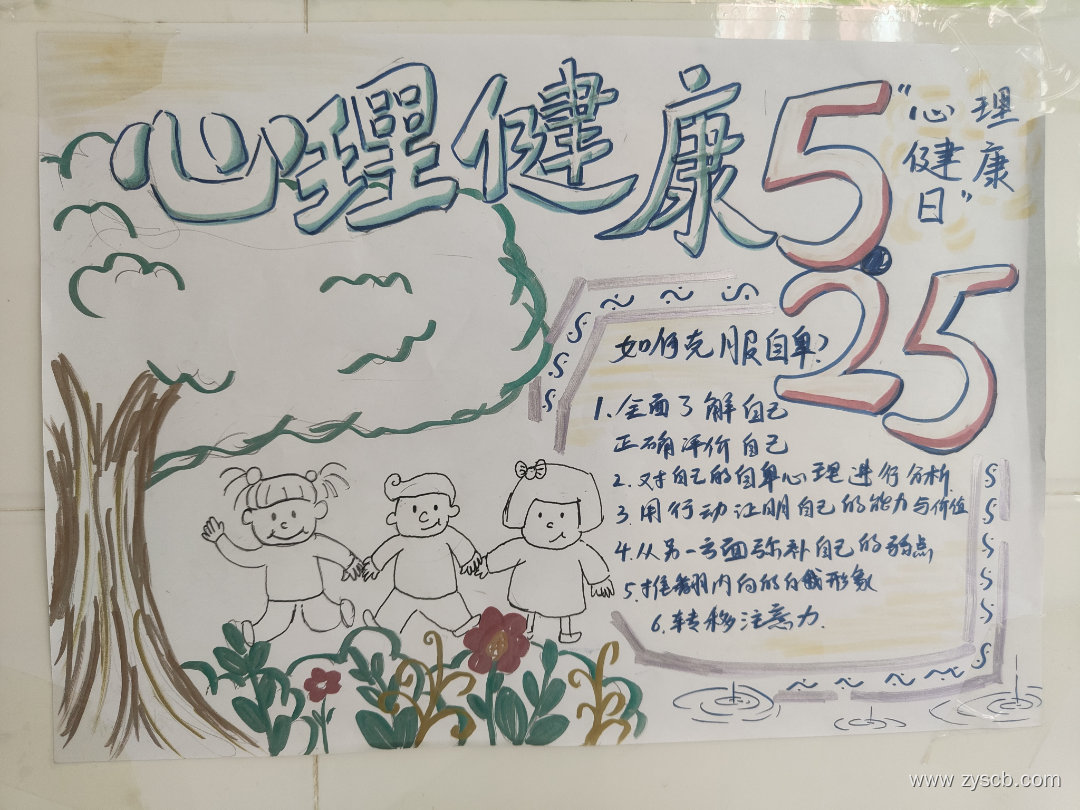 心理健康
5.25
"心理
健康
日"
如何克服自卑?
1.全面了解自己
正确评价自己
2.对自己的自卑心理进行分析
3.用行动证明自己的能力与价值
4.从另一方面弥补自己的弱点
5.推翻内向的自我形象
6.转移注意力.
www.zyscb.com